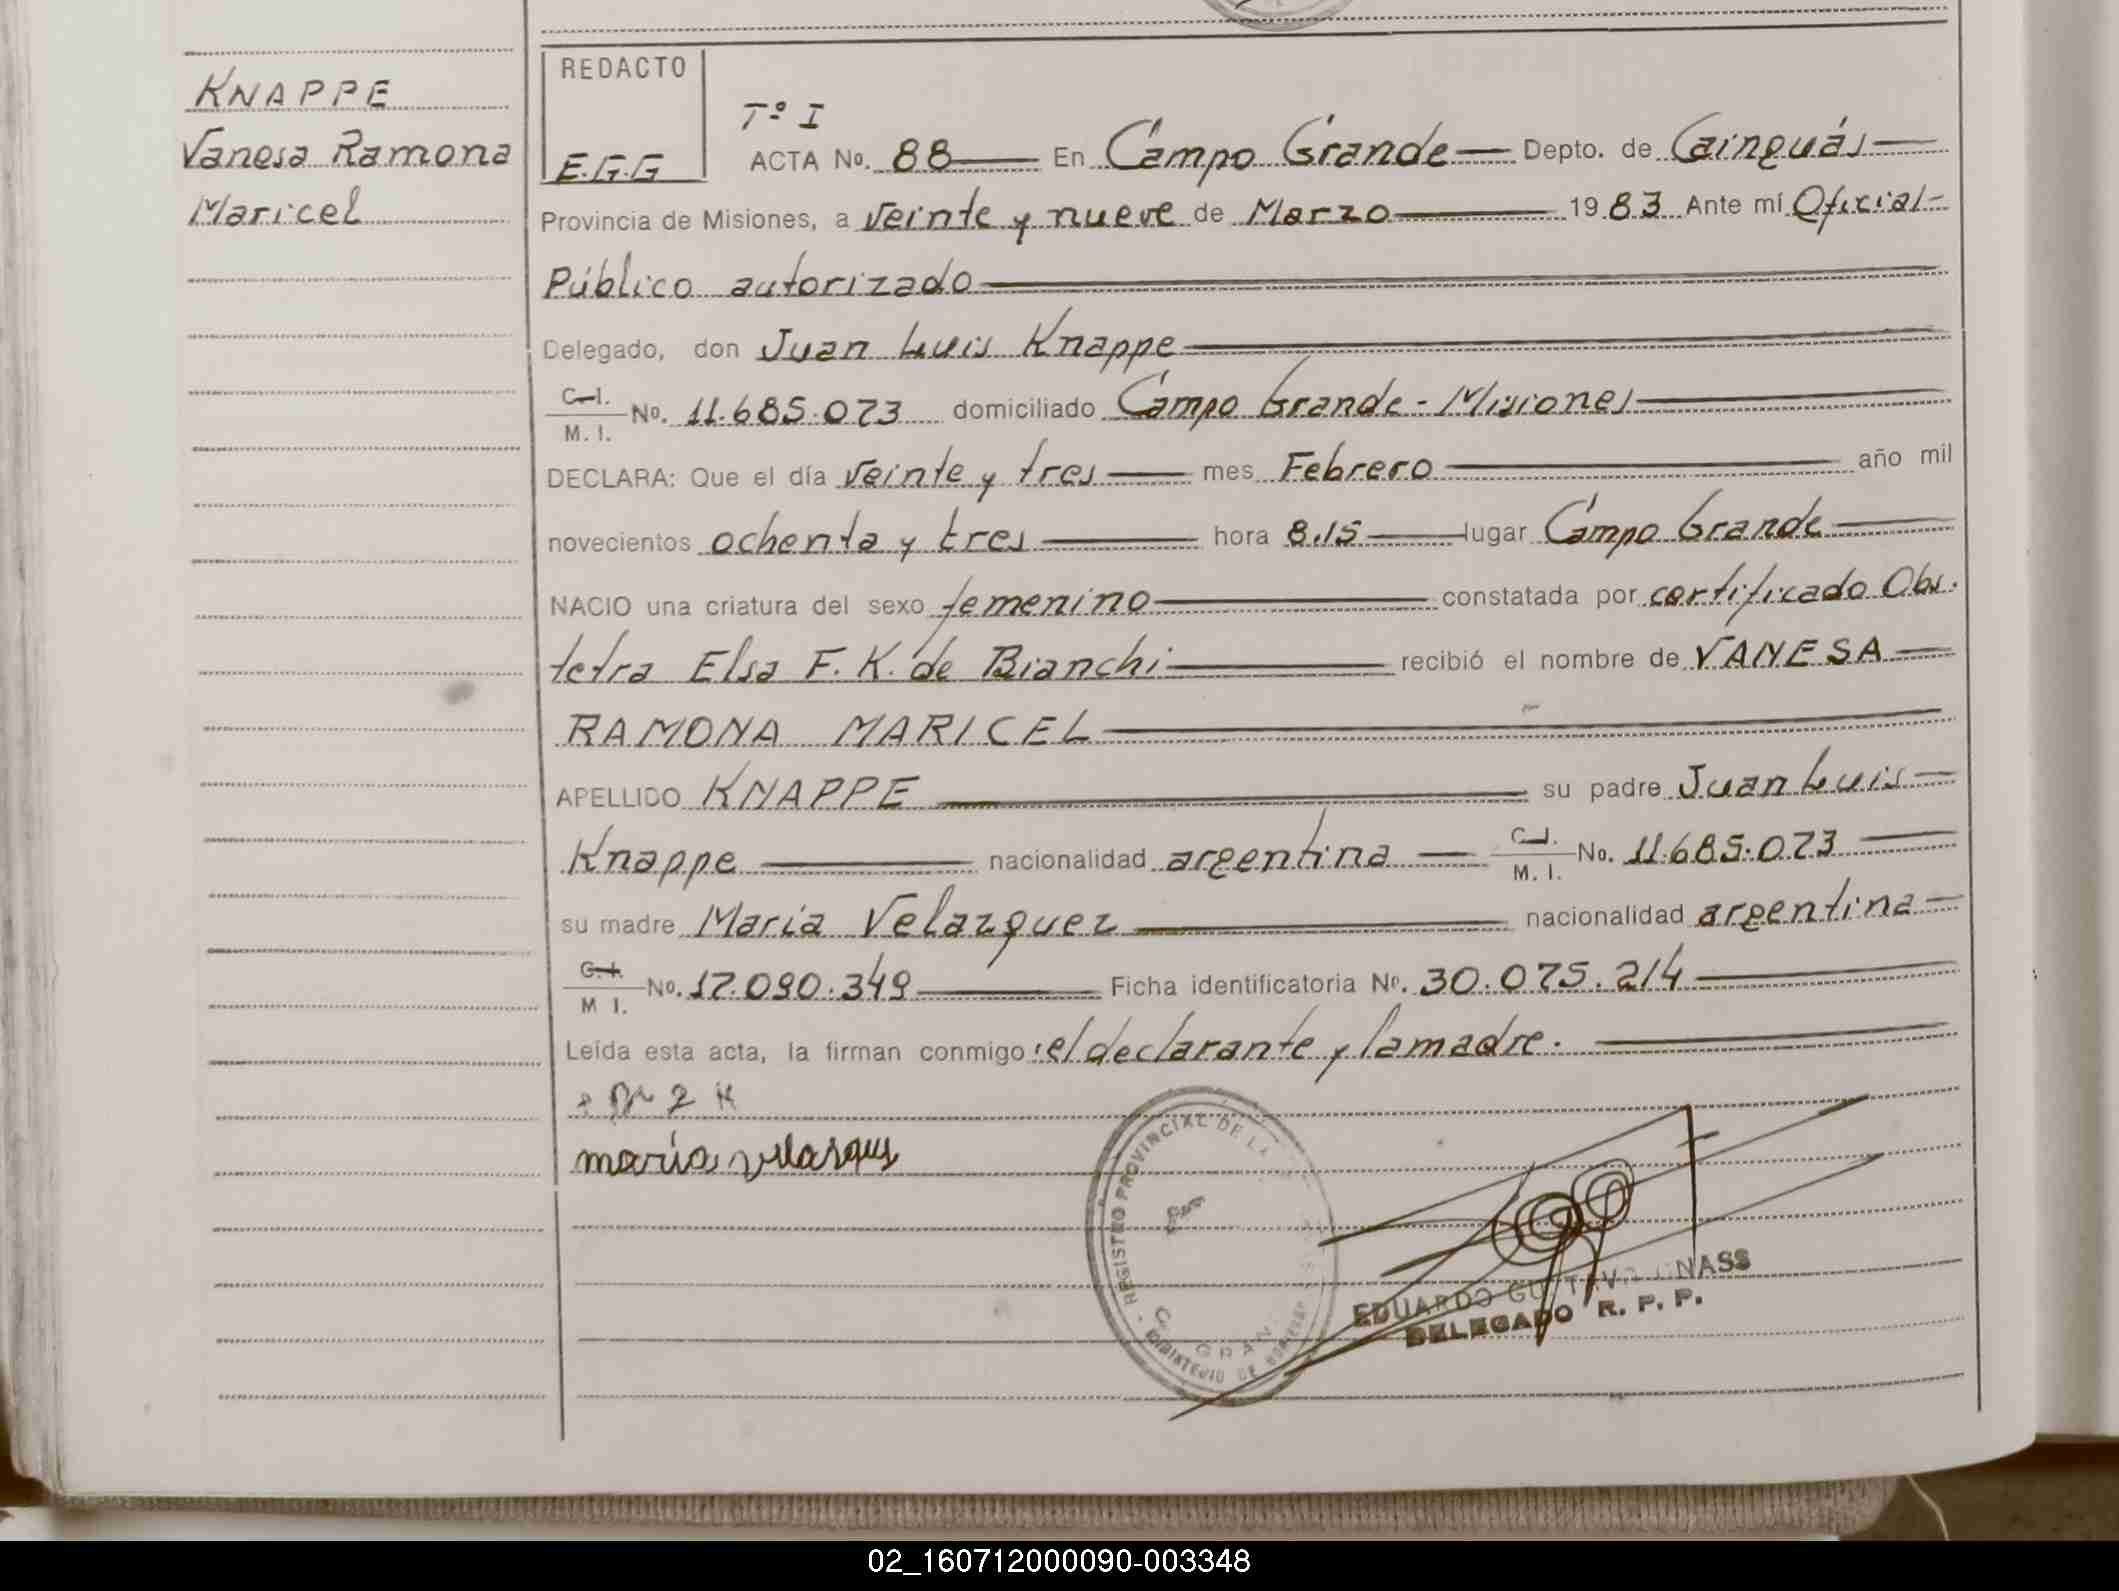 KNAPPE
Vanesa Ramona
Maricel
REDACTO
E.G.G
Tº I
ACTA No. 88 En Campo Grande Depto. de Cainguás
Provincia de Misiones, a veinte y nueve de Marzo 1983 Ante mí Oficial
Público autorizado
Delegado, don Juan Luis Knappe
C.I.
M. I. No. 11.685.073 domiciliado Campo Grande - Misiones
DECLARA: Que el día veinte y tres mes Febrero año mil
novecientos ochenta y tres hora 8.15 lugar Campo Grande
NACIO una criatura del sexo femenino constatada por certificado Obs.
tetra Elsa F. K. de Bianchi recibió el nombre de VANESA
RAMONA MARICEL
APELLIDO KNAPPE su padre Juan Luis
Knappe nacionalidad argentina C.I.
M. I. No. 11.685.073
su madre Maria Velazquez nacionalidad argentina
C.I.
M I. No. 17.090.349 Ficha identificatoria Nº. 30.075.214
Leída esta acta, la firman conmigo: el declarante y la madre.
maria velasques
REGISTRO PROVINCIAL DE LA
EDUARDO GUSTAVO
DELEGADO R. P. P.
02_160712000090-003348